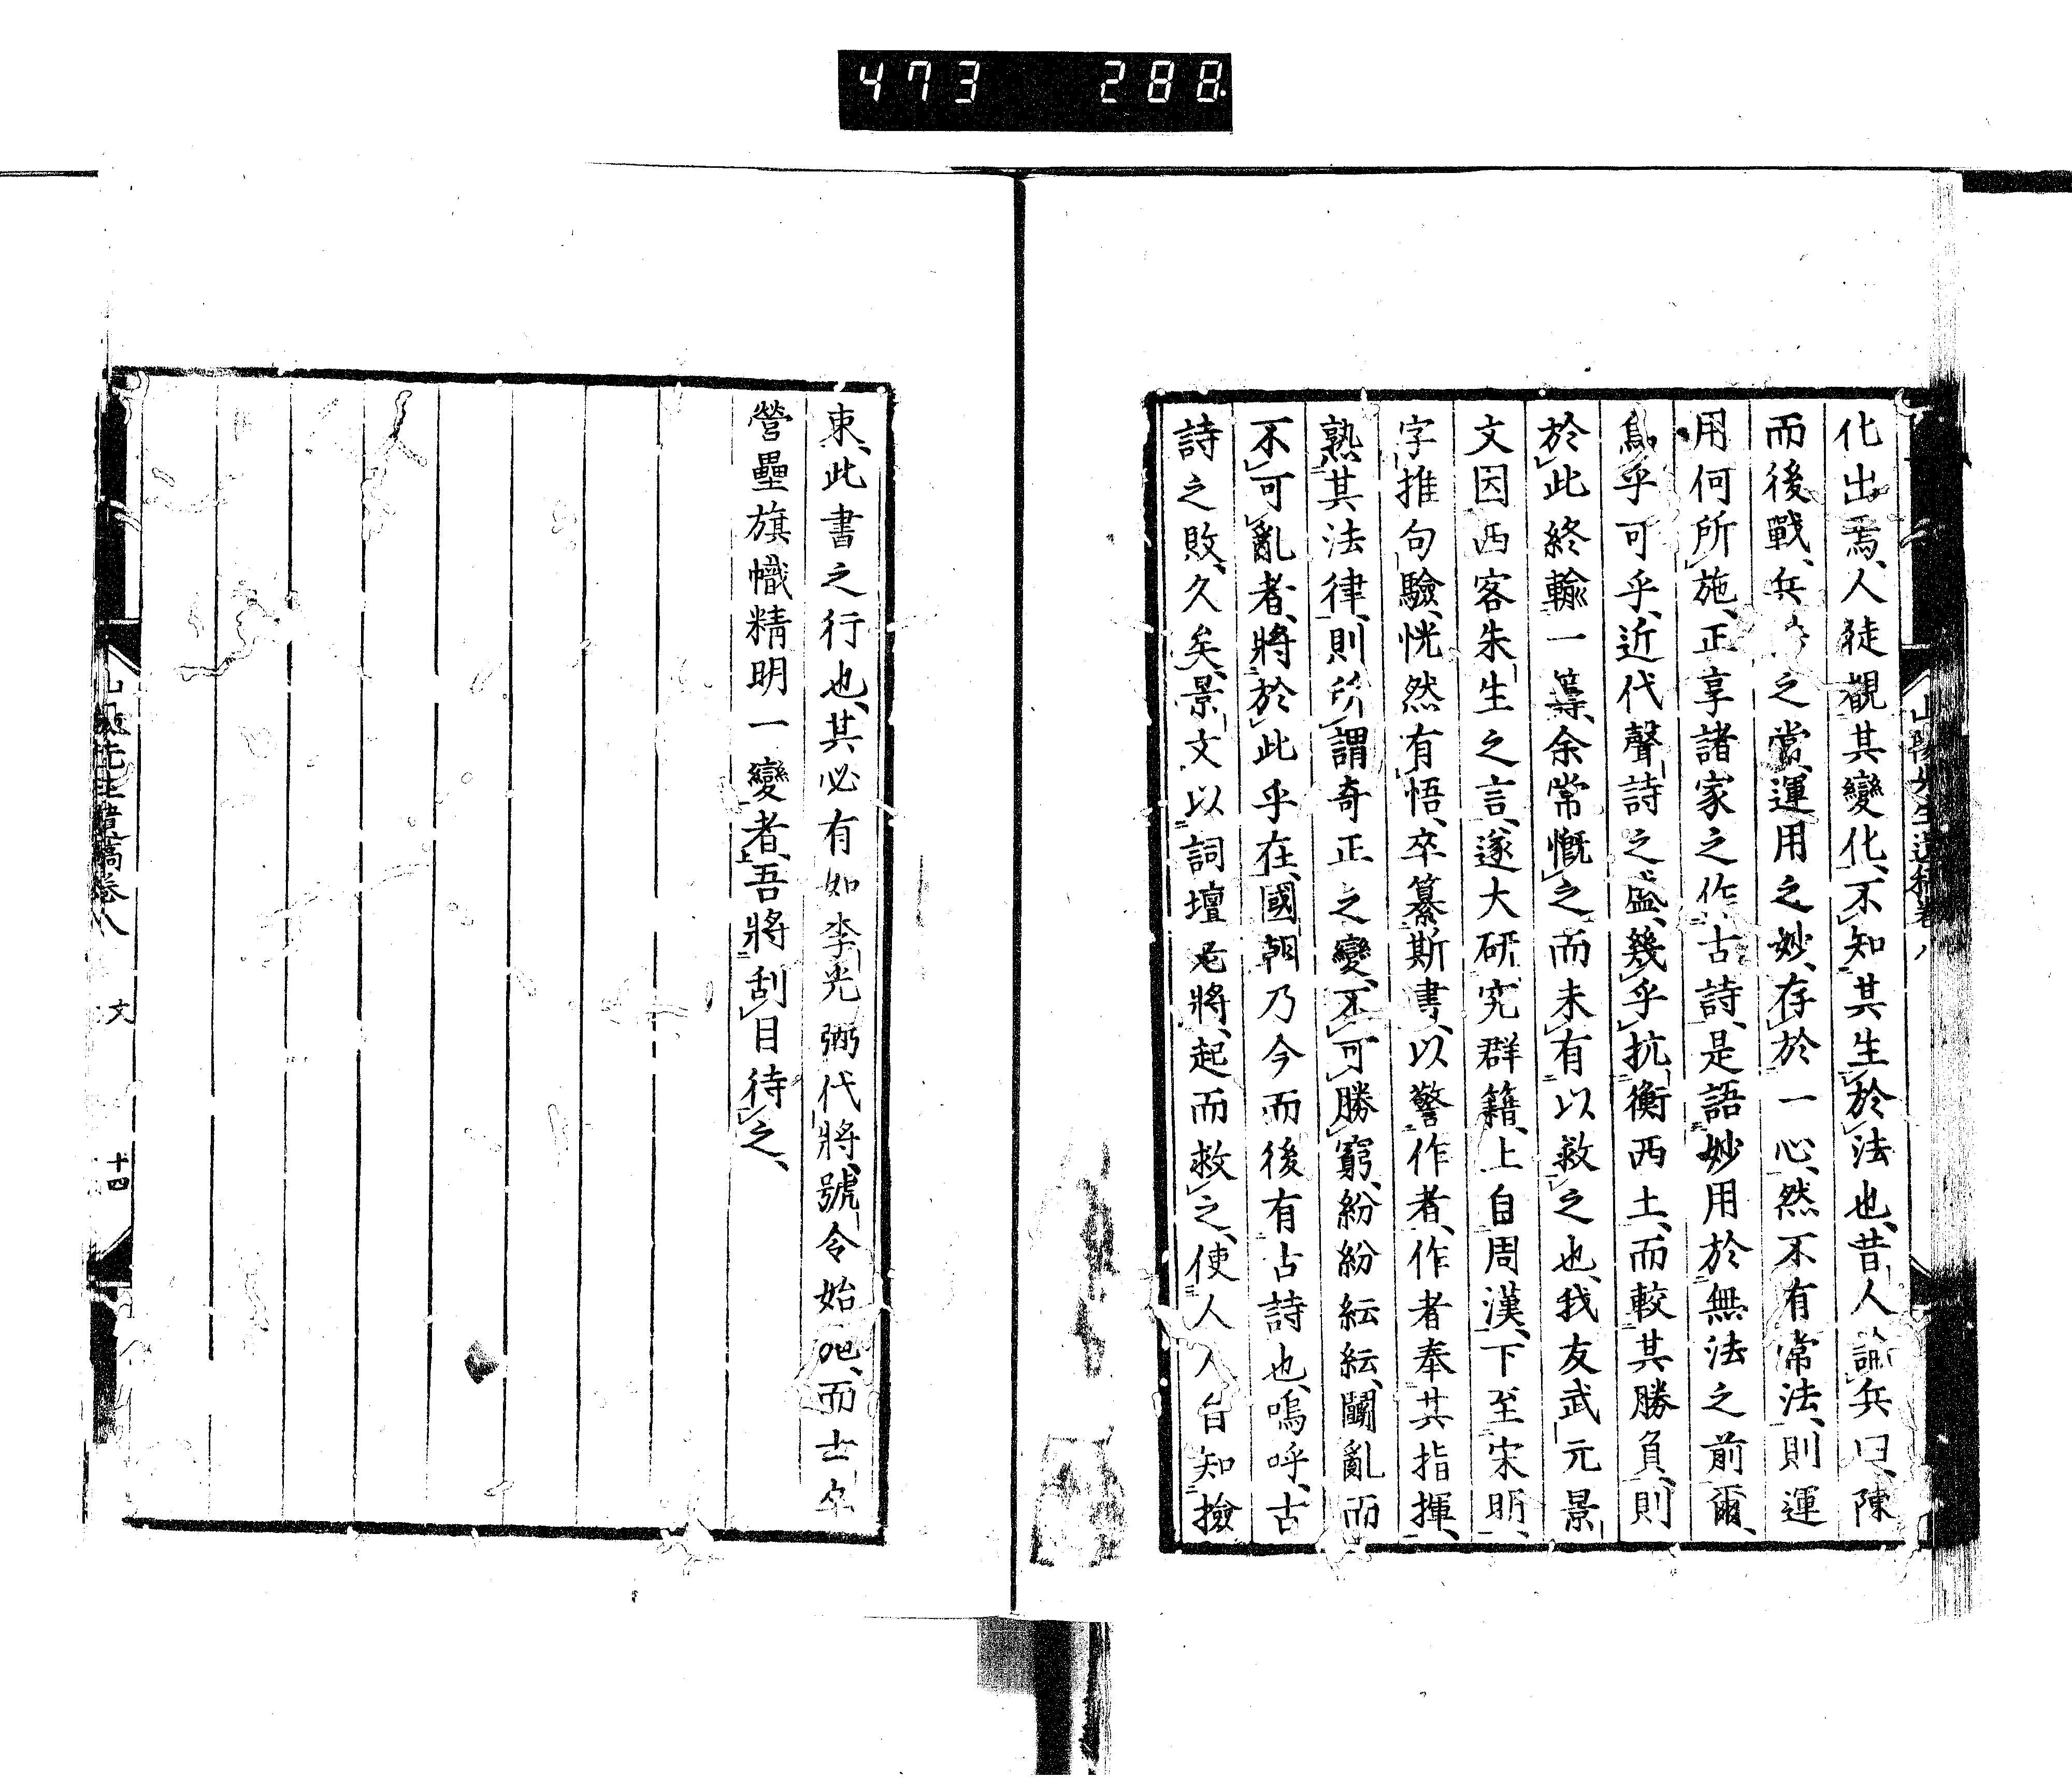 473 288
化出焉、人徒觀其變化、不知其生於法也、昔人論兵曰、陳
而後戰、兵之常、運用之妙、存於一心、然不有常法、則運
用何所施、正享諸家之作古詩、是語妙用於無法之前爾、
烏乎可乎、近代聲詩之盛、幾乎抗衡西土、而較其勝負、則
於此終輸一籌、余常慨之、而未有以救之也、我友武元景
文因西客朱生之言、遂大研究群籍、上自周漢、下至宋明、
字推句驗、恍然有悟、卒纂斯書、以警作者、作者奉其指揮、
熟其法律、則所謂奇正之變、不可勝窮、紛紛紜紜、鬭亂而
不可亂者、將於此乎在、國朝乃今而後有古詩也、嗚呼、古
詩之敗、久矣、景文以詞壇老將、起而救之、使人人皆知撿
山陽先生遺稿卷八
東、此書之行也、其必有如李光弼代將、號令始出、而士卒
營壘旗幟精明一變者、吾將刮目待之、
先生遺稿卷八 文 十四